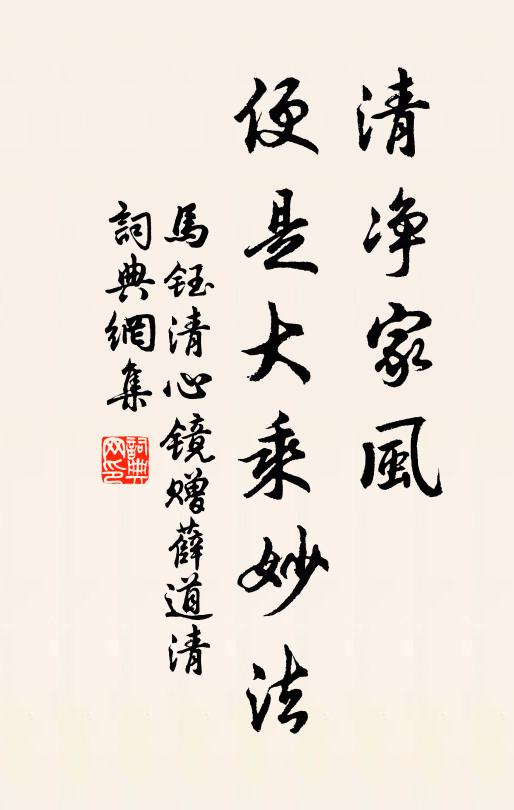 清净家風
便是大乘妙法
馬鈺清心镜赠薛道清
詞典網集
詞典网印